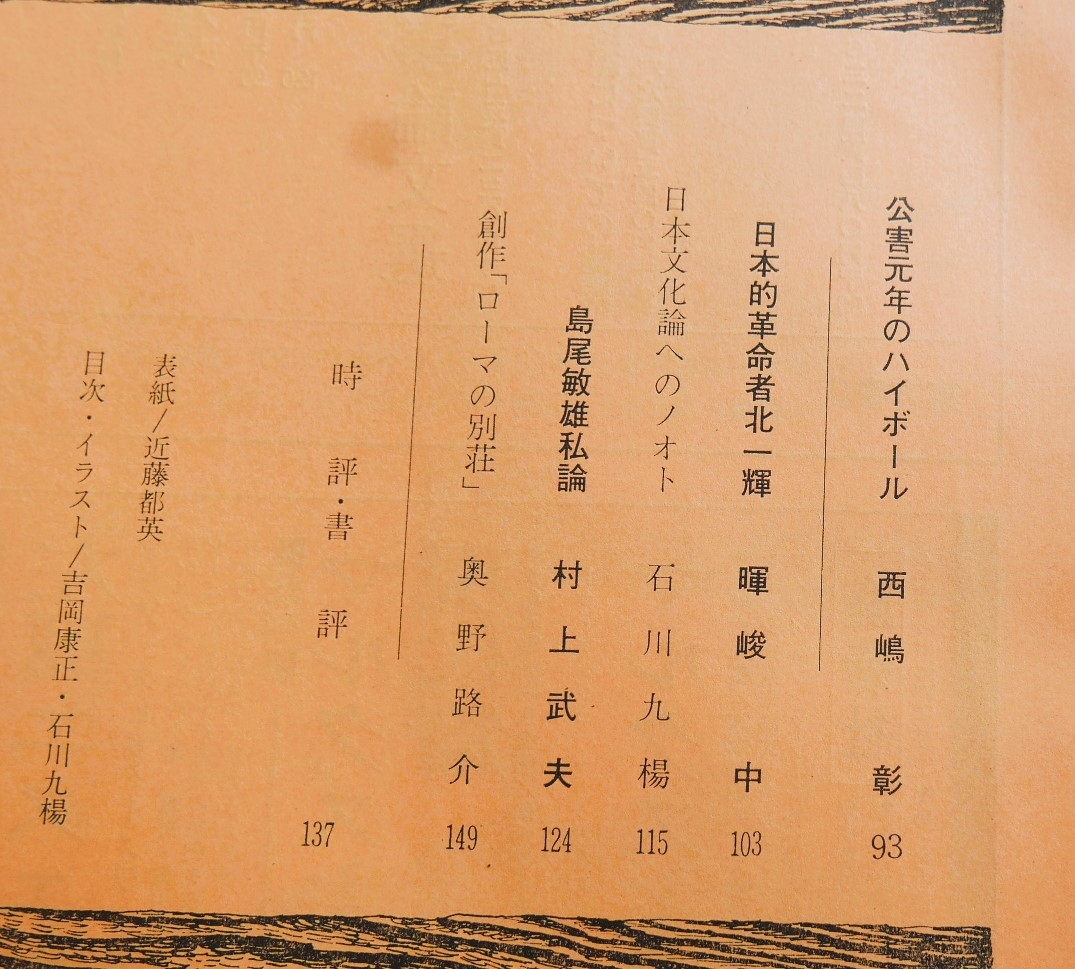 公害元年のハイボール 西嶋 彰 93
日本的革命者北一輝 暉峻 中 103
日本文化論へのノオト 石川九楊 115
島尾敏雄私論 村上武夫 124
創作「ローマの別荘」 奥野路介 149
時評・書評 137
表紙/近藤都英
目次・イラスト/吉岡康正・石川九楊